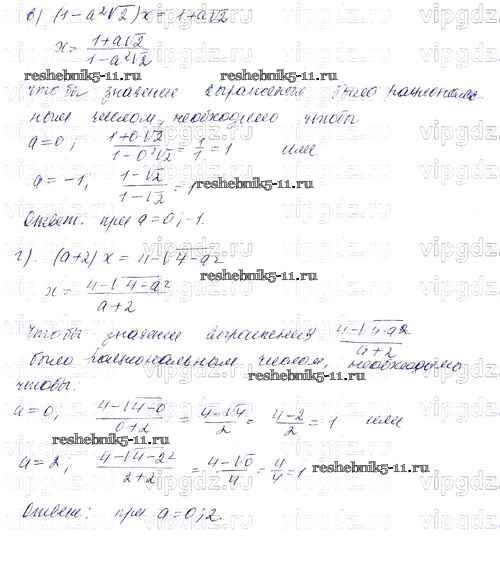 в) (1-a²√2)x = 1+a√2
x = (1+a√2)/(1-a²√2)
reshebnik5-11.ru reshebnik5-11.ru
чтобы значение выражения было рациональ-
ным числом, необходимо чтобы
a=0; (1+0·√2)/(1-0²√2) = 1/1 = 1 или
a=-1; (1-√2)/(1-√2) = 1
reshebnik5-11.ru
Ответ: при a=0; -1.
г). (a+2)x = 4-√4-a²
reshebnik5-11.ru
x = (4-√4-a²)/(a+2)
чтобы значение выражения (4-√4-a²)/(a+2)
было рациональным числом, необходимо
чтобы:
a=0; (4-√4-0)/(0+2) = (4-√4)/2 = (4-2)/2 = 1 или
reshebnik5-11.ru
a=2; (4-√4-2²)/(2+2) = (4-√0)/4 = 4/4 = 1
reshebnik5-11.ru
Ответ: при a=0; 2.
vipgdz.ru